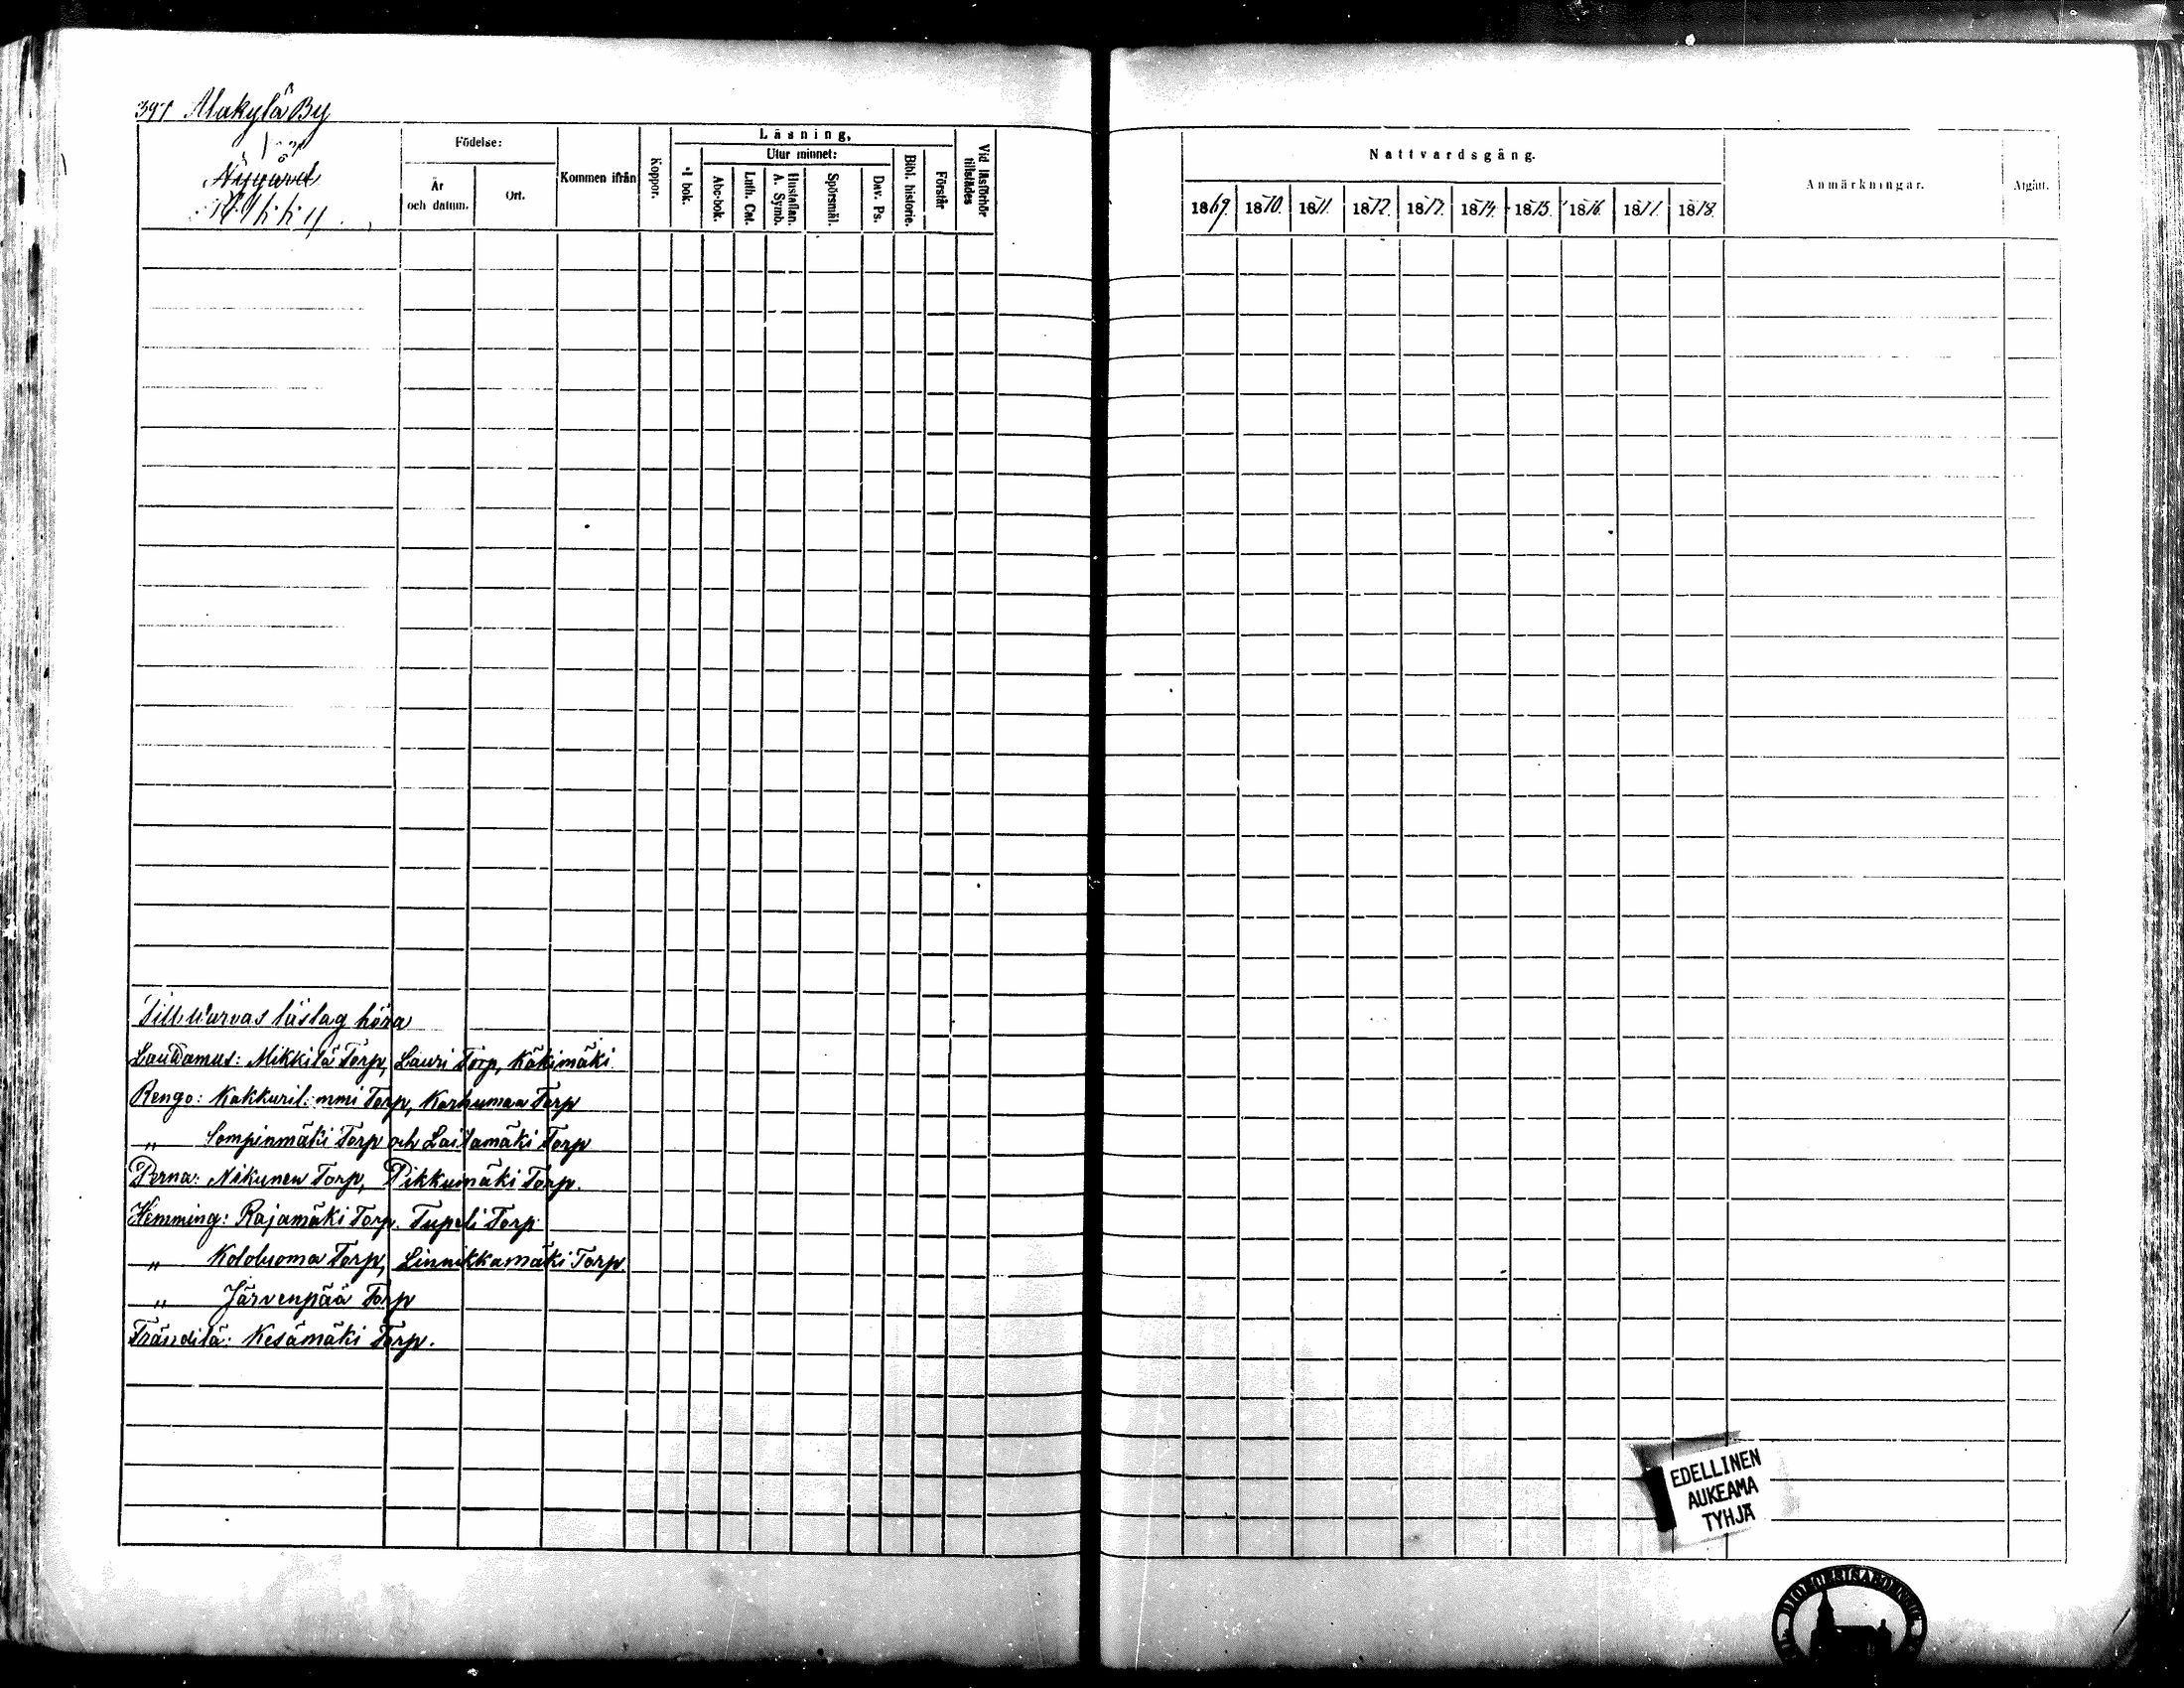 391 Alakylä By
Nygård
Födelse:
År och datum.
Ort.
Kommen ifrån
Koppor.
Läsning.
I bok.
Utur minnet:
Abc-bok.
Luth. Cat.
Hustaflan. A. Symb.
Spörsmål.
Dav. Ps.
Bibl. historie.
Förstår
Vid läsförhör tillstädes
Nattvardsgång.
1869. 1870. 1871. 1872. 1873. 1874. 1875. 1876. 1877. 1878.
Anmärkningar.
Afgått.
Till Warvas läslag höra
Laudamus: Mikkilä Torp, Lauri Torp, Käkimäki
Rengo: Kakkuril:mmi Torp, Karhumaa Torp
" Sompinmäki Torp och Laitamäki Torp
Perna: Nikunen Torp, Pikkumäki Torp.
Hemming: Rajamäki Torp. Tupeli Torp
" Kololuoma Torp, Linnikkamäki Torp.
" Järvenpää Torp
Trändilä: Kesämäki Torp.
EDELLINEN
AUKEAMA
TYHJÄ